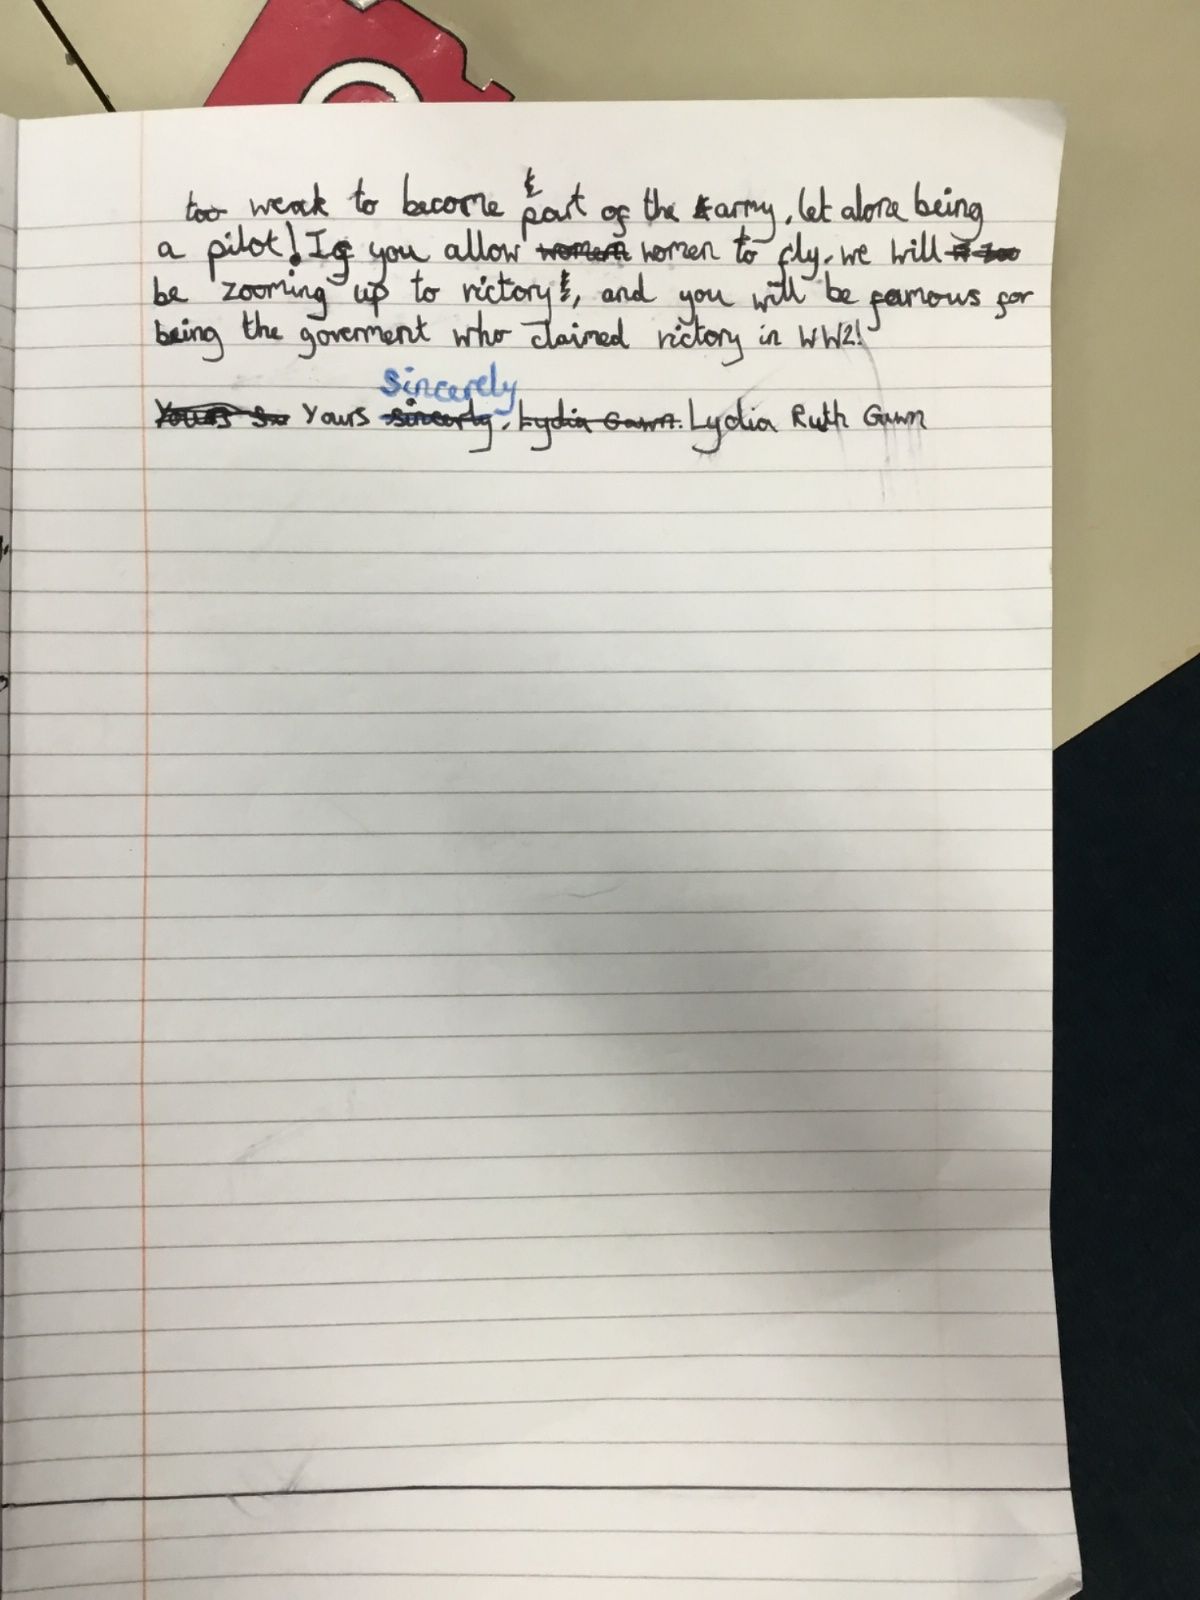 too weak to become part of the army, let alone being
a pilot! If you allow women women to fly, we will
be zooming up to victory, and you will be famous for
being the goverment who claimed victory in WW2!
sincerely
Yours Yours sincerly, Lydia Gawn. Lydia Ruth Gawn